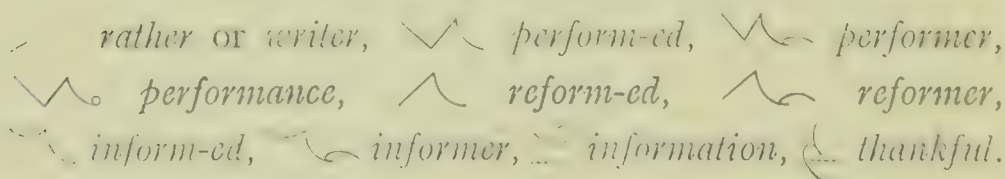 rather or writer, perform-ed, performer,
performance, reform-ed, reformer,
inform-ed, informer, information, thankful.